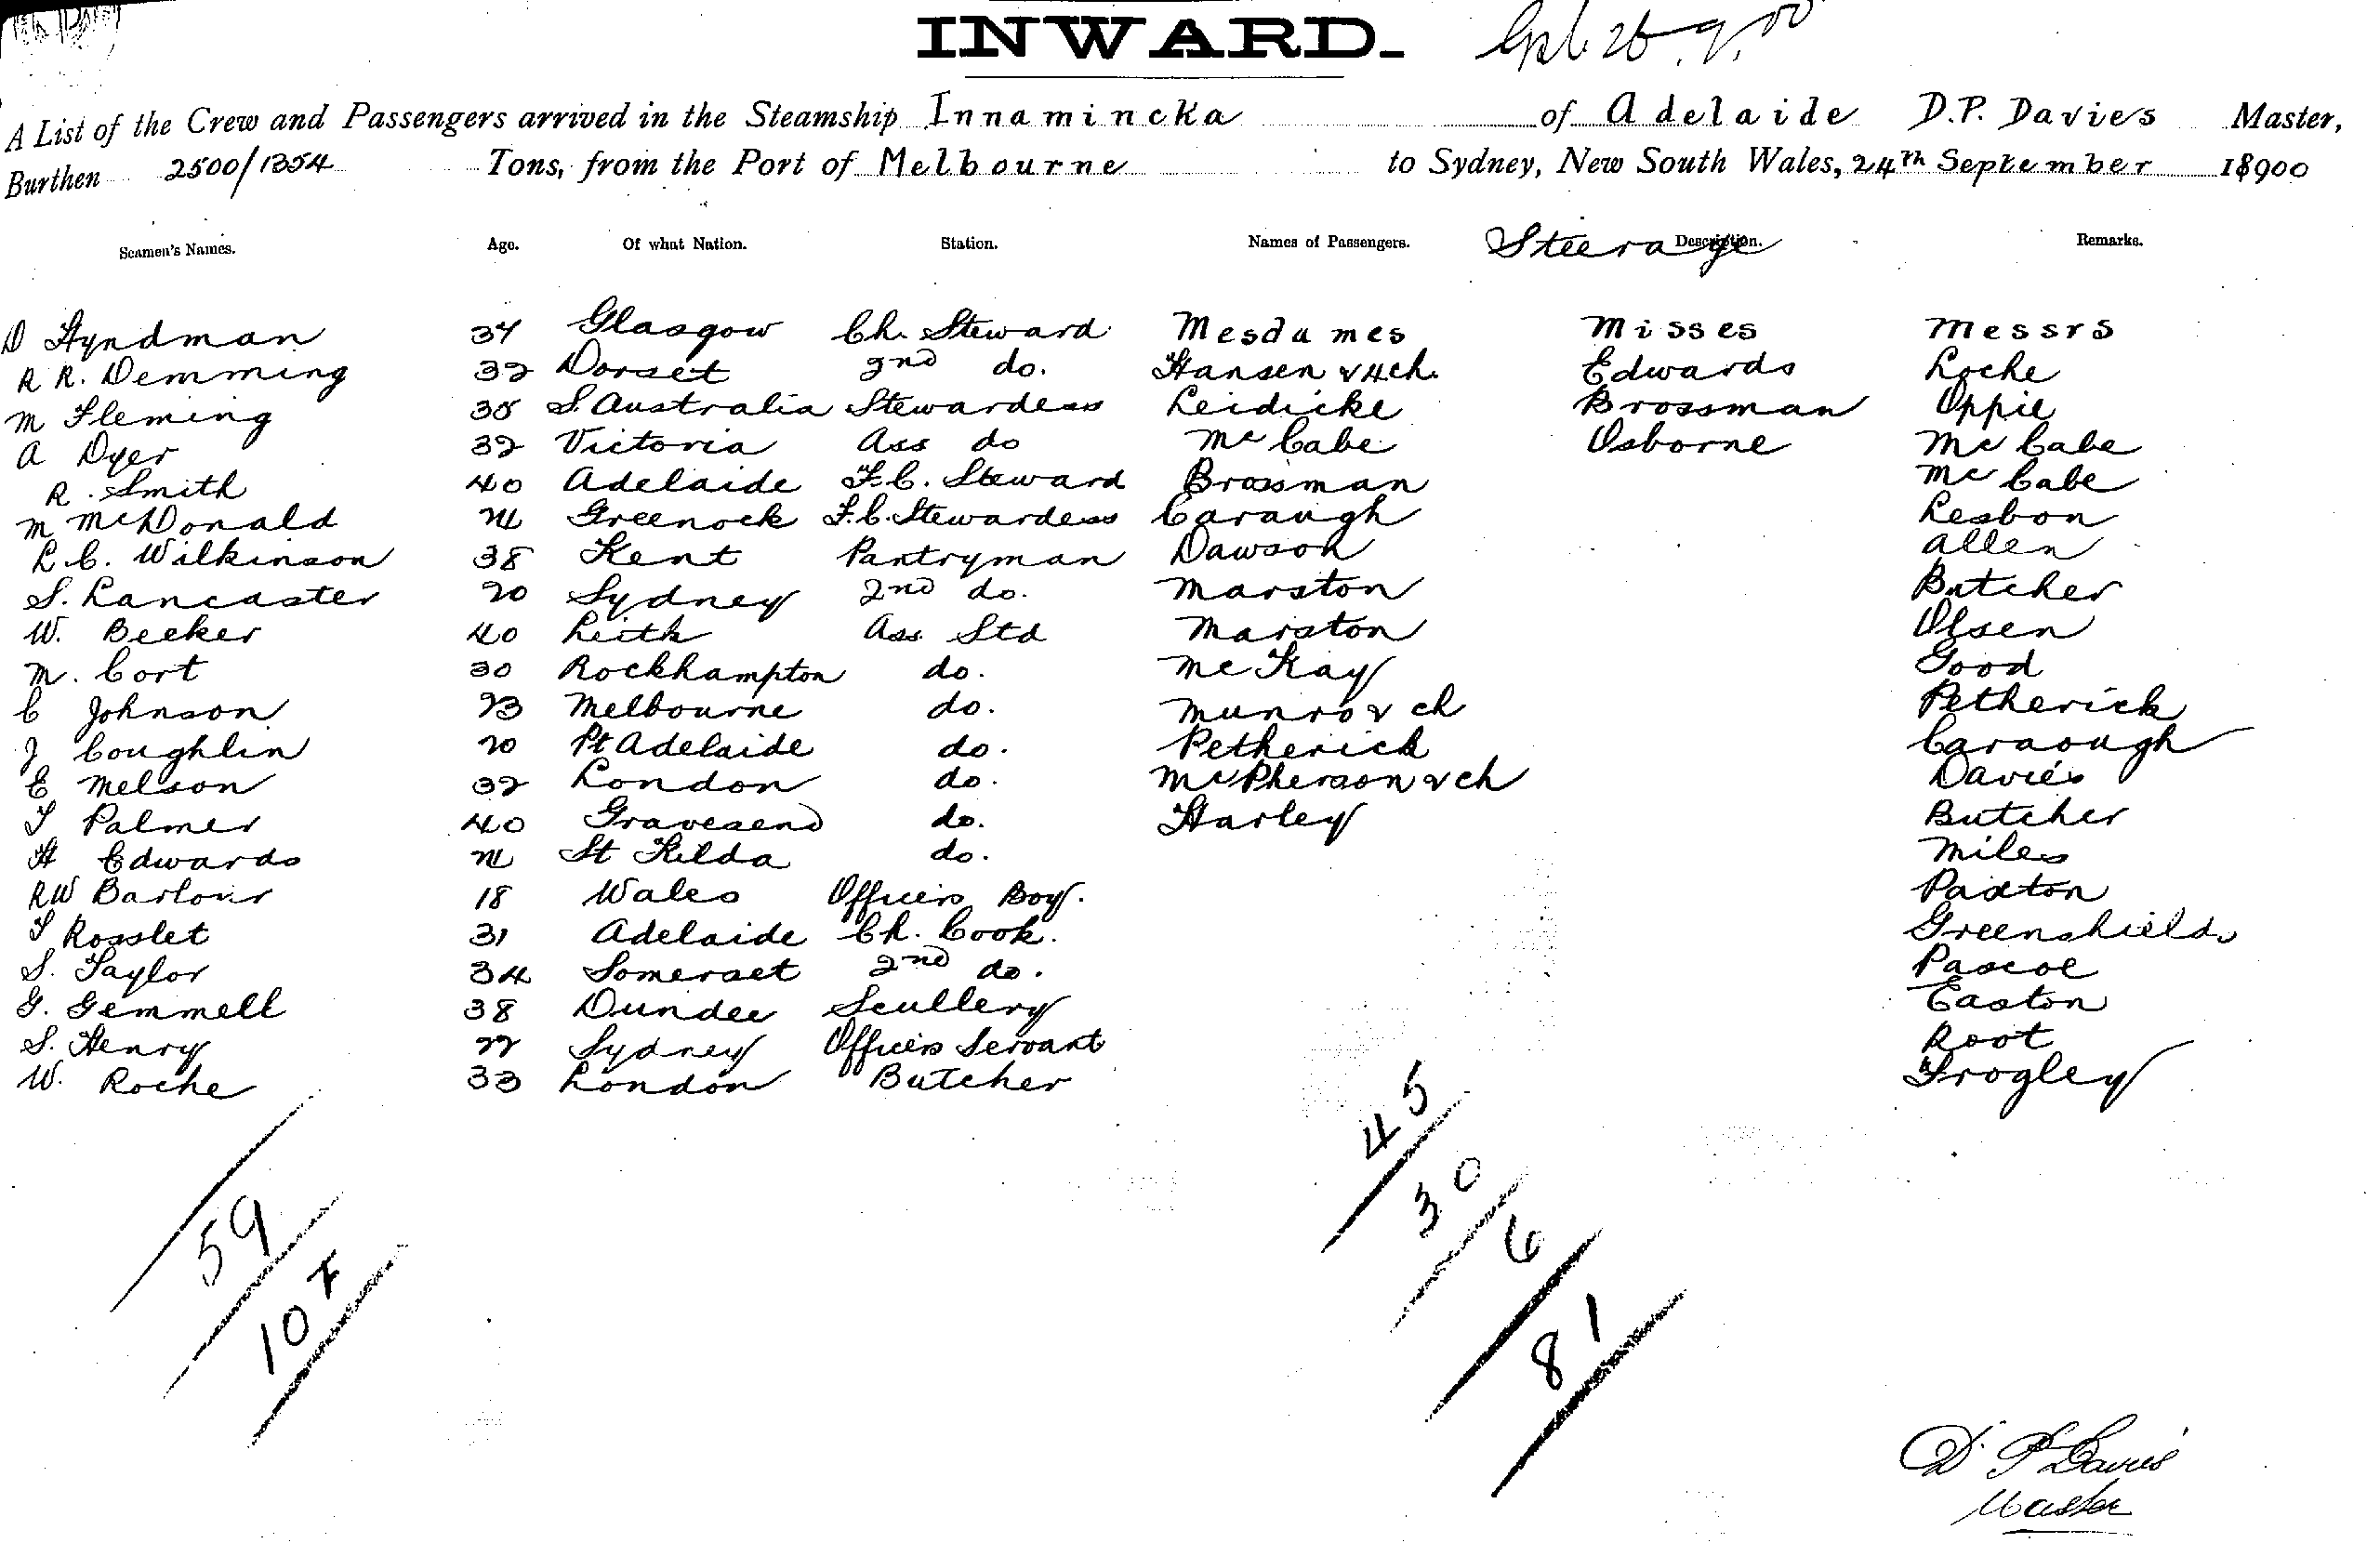 INWARD.
A List of the Crew and Passengers arrived in the Steamship Innamincka of Adelaide D.P. Davies Master,
Burthen 2500/1354 Tons, from the Port of Melbourne to Sydney, New South Wales, 24th September 18900
Seamen's Names. Age. Of what Nation. Station. Names of Passengers. Steerage Description. Remarks.
D Hyndman 37 Glasgow Ch. Steward Mesdames Misses Messrs
R R. Demming 32 Dorset 2nd do. Hansen & 4ch. Edwards Loche
M Fleming 35 S. Australia Stewardess Leidicke Brossman Oppie
A Dyer 32 Victoria Ass do McCabe Osborne McCabe
R. Smith 40 Adelaide F.C. Steward Brossman McCabe
M McDonald 24 Greenock F.C. Stewardess Caraugh Lesbon
L.C. Wilkinson 38 Kent Pantryman Dawson Allen
S. Lancaster 20 Sydney 2nd do. Marston Butcher
W. Beeker 40 Leith Ass. Std Marston Olsen
M. Cort 30 Rockhampton do. McKay Good
C Johnson 23 Melbourne do. Munro & ch Petherick
J Coughlin 20 Pt Adelaide do. Petherick Caraough
E Melson 32 London do. McPherson & ch Davies
T Palmer 40 Gravesend do. Harley Butcher
H Edwards 24 St Kilda do. Miles
RW Barlow 18 Wales Officers Boy. Paxton
T Rosslet 31 Adelaide Ch. Cook. Greenshields
S. Taylor 34 Somerset 2nd do. Pascoe
G. Gemmell 38 Dundee Scullery Easton
S. Henry 22 Sydney Officers Servant Root
W. Roche 33 London Butcher Frogley
45
30
59 6
107 81
D. P Davies
Master